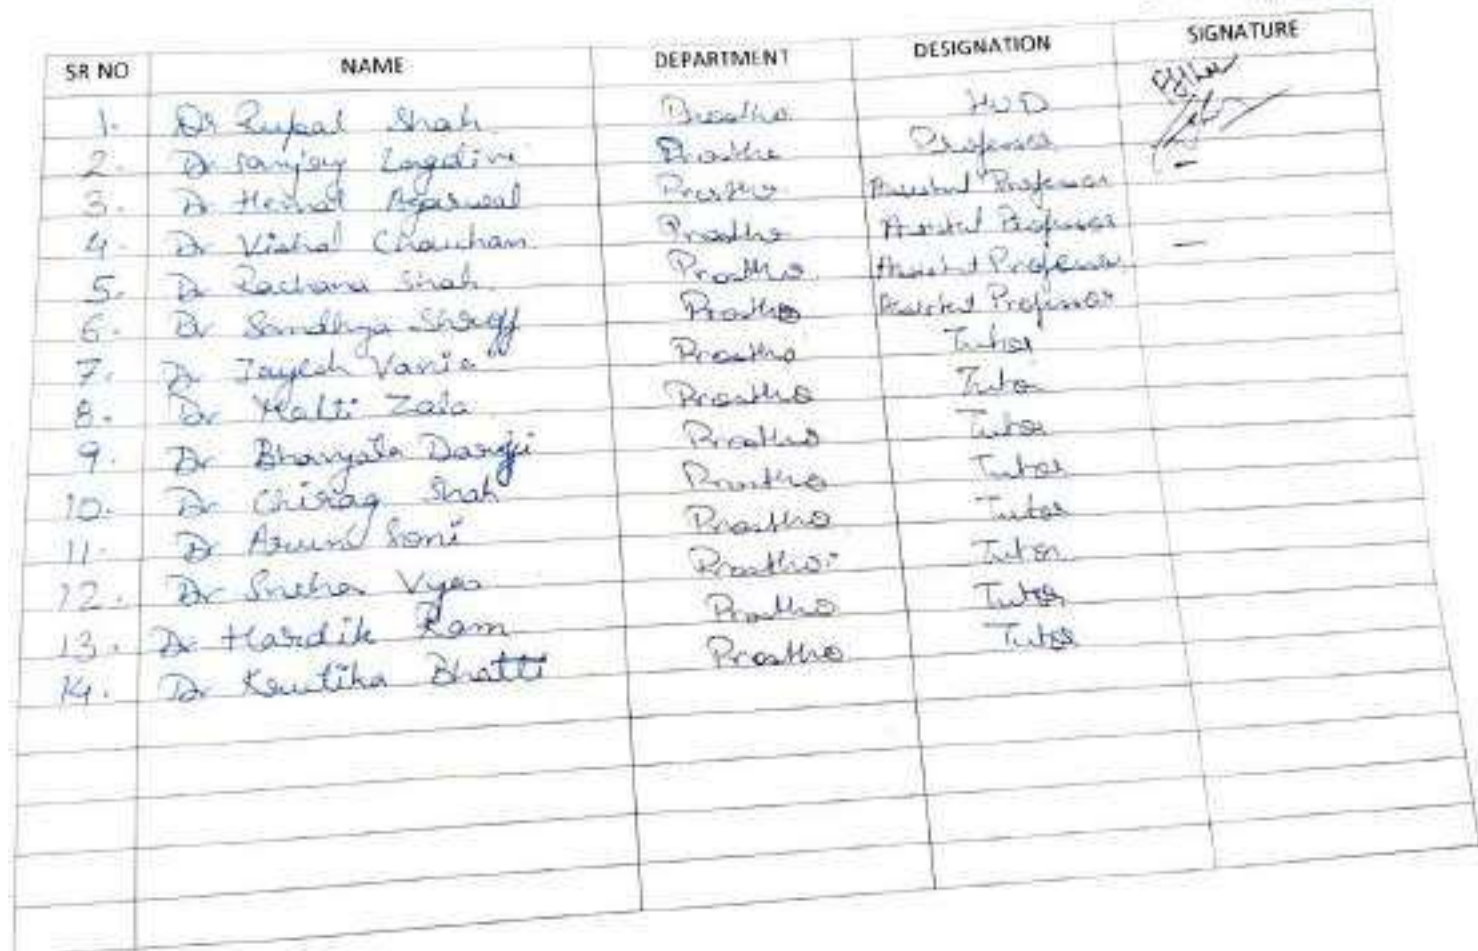 SR NO NAME DEPARTMENT DESIGNATION SIGNATURE
1. Dr Rupal Shah Prostho HOD
2. Dr Sanjay Lagdive Prostho Professor
3. Dr Hemal Agarwal Prostho Assistant Professor
4. Dr Vishal Chauhan Prostho Assistant Professor —
5. Dr Rachana Shah Prostho Assistant Professor
6. Dr Sandhya Shroff Prostho Assistant Professor
7. Dr Jayesh Vania Prostho Tutor
8. Dr Malti Zala Prostho Tutor
9. Dr Darji Prostho Tutor
10. Dr Chirag Shah Prostho Tutor
11. Dr Soni Prostho Tutor
12. Dr Sneha Vyas Prostho Tutor
13. Dr Hardik Ram Prostho Tutor
14. Dr Krutika Bhatti Prostho Tutor